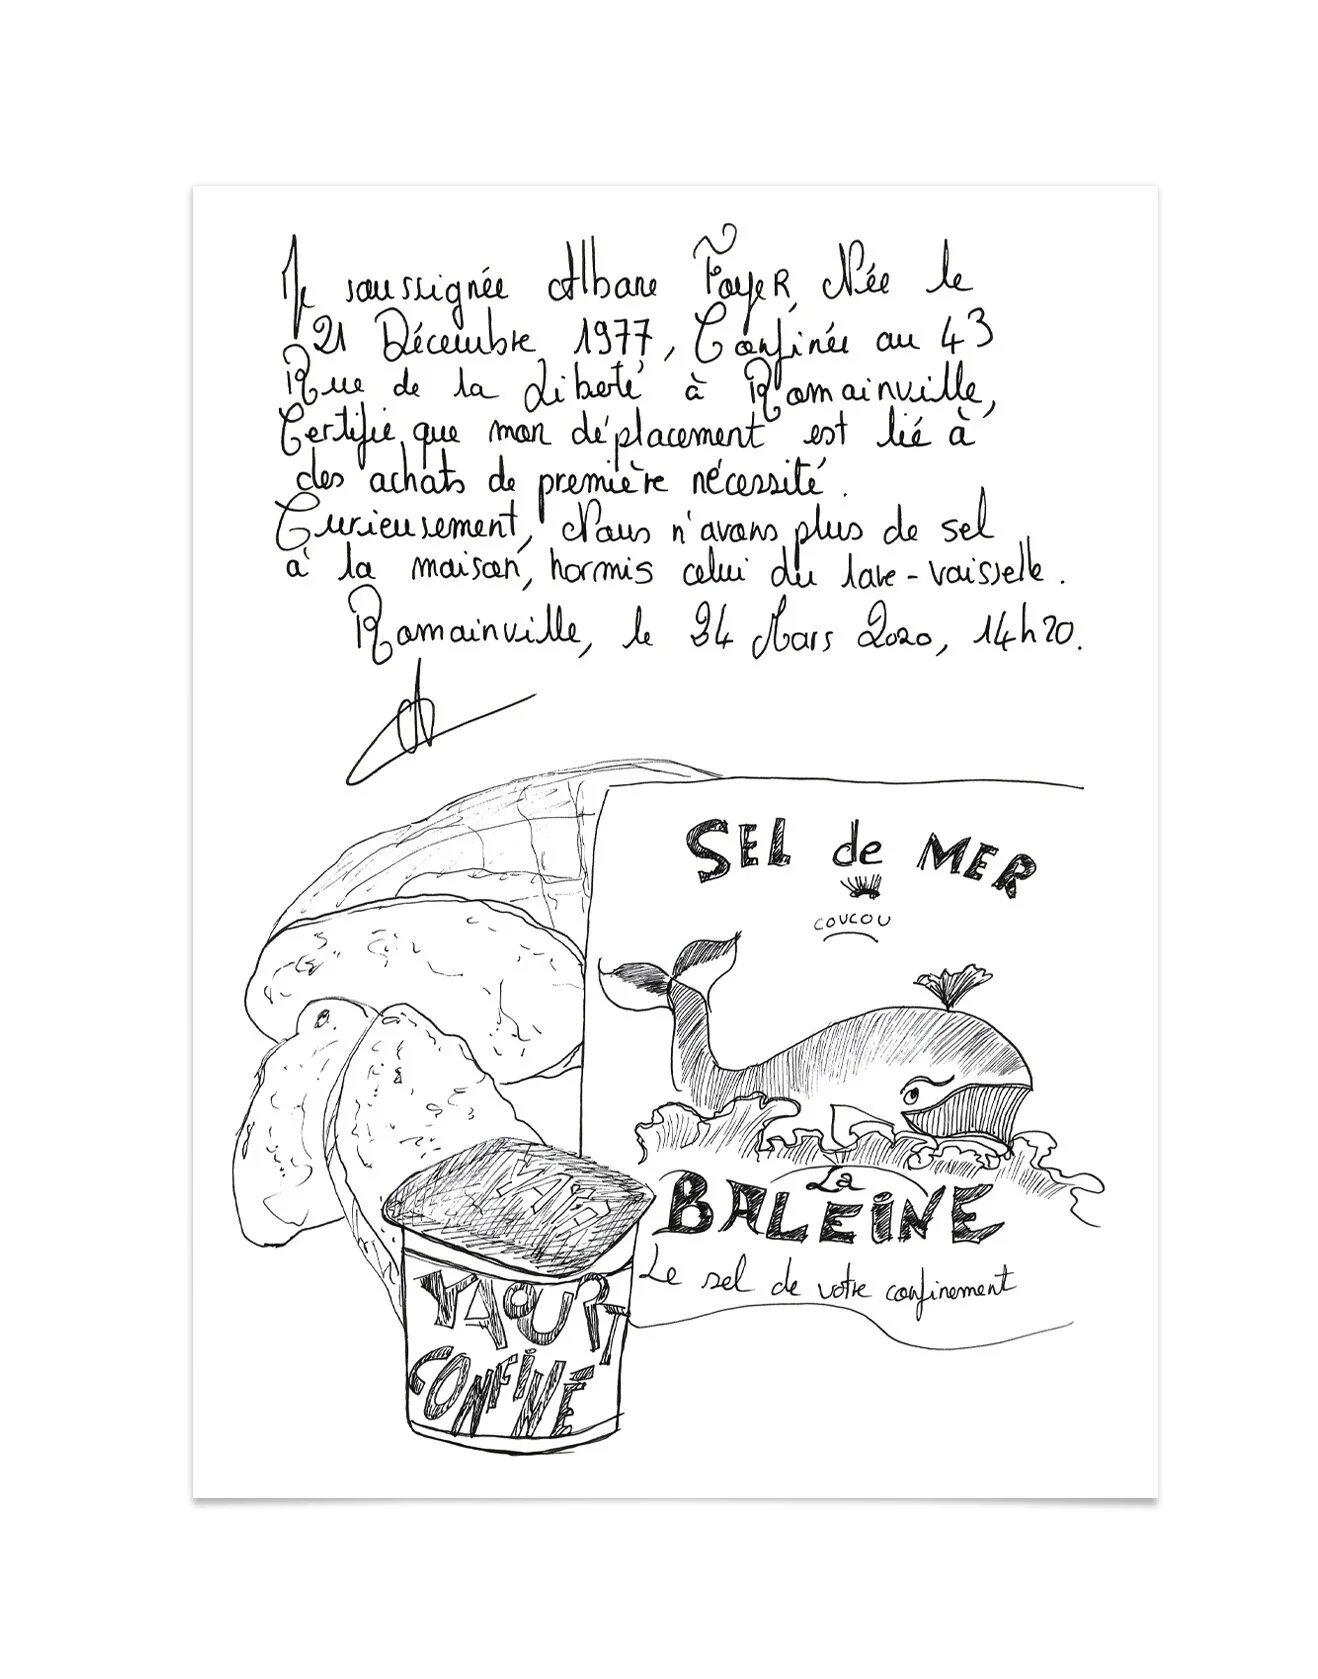 Je soussignée Albane Foyer, Née le
21 Décembre 1977, Confinée au 43
Rue de la Liberté à Romainville,
Certifie que mon déplacement est lié à
des achats de première nécessité.
Curieusement, Nous n'avons plus de sel
à la maison, hormis celui du lave-vaisselle.
Romainville, le 24 Mars 2020, 14h20.
SEL de MER
COUCOU
La
BALEINE
Le sel de votre confinement
YAOURT
CONFINÉ